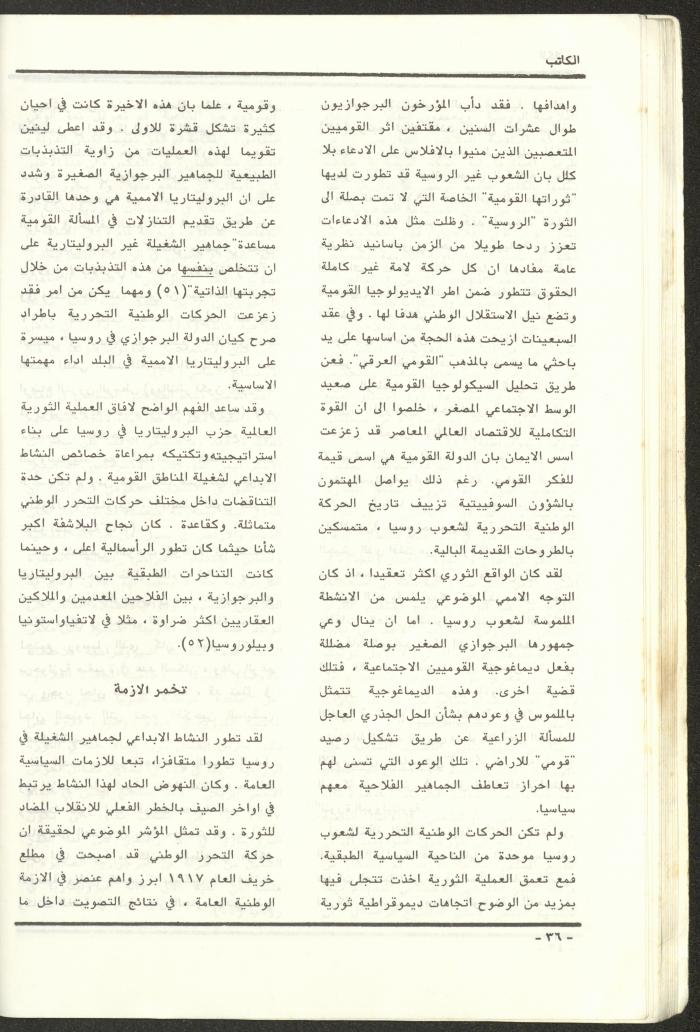 الكاتب
واهدافها . فقد دأب المؤرخون البرجوازيون
طوال عشرات السنين ، مقتفين اثر القوميين
المتعصبين الذين منيوا بالافلاس على الادعاء بلا
كلل بان الشعوب غير الروسية قد تطورت لديها
"ثوراتها القومية" الخاصة التي لا تمت بصلة الى
الثورة "الروسية" . وظلت مثل هذه الادعاءات
تعزز ردحا طويلا من الزمن باسانيد نظرية
عامة مفادها ان كل حركة لامة غير كاملة
الحقوق تتطور ضمن اطر الايديولوجيا القومية
وتضع نيل الاستقلال الوطني هدفا لها . وفي عقد
السبعينات ازيحت هذه الحجة من اساسها على يد
باحثي ما يسمى بالمذهب "القومي العرقي". فعن
طريق تحليل السيكولوجيا القومية على صعيد
الوسط الاجتماعي المصغر ، خلصوا الى ان القوة
التكاملية للاقتصاد العالمي المعاصر قد زعزعت
اسس الايمان بان الدولة القومية هي اسمى قيمة
للفكر القومي. رغم ذلك يواصل المهتمون
بالشؤون السوفييتية تزييف تاريخ الحركة
الوطنية التحررية لشعوب روسيا ، متمسكين
بالطروحات القديمة البالية.
لقد كان الواقع الثوري اكثر تعقيدا ، اذ كان
التوجه الاممي الموضوعي يلمس من الانشطة
الملموسة لشعوب روسيا . اما ان ينال وعي
جمهورها البرجوازي الصغير بوصلة مضللة
بفعل ديماغوجية القوميين الاجتماعية ، فتلك
قضية اخرى. وهذه الديماغوجية تتمثل
بالملموس في وعودهم بشأن الحل الجذري العاجل
للمسألة الزراعية عن طريق تشكيل رصيد
"قومي" للاراضي . تلك الوعود التي تسنى لهم
بها احراز تعاطف الجماهير الفلاحية معهم
سياسيا.
ولم تكن الحركات الوطنية التحررية لشعوب
روسيا موحدة من الناحية السياسية الطبقية.
فمع تعمق العملية الثورية اخذت تتجلى فيها
بمزيد من الوضوح اتجاهات ديموقراطية ثورية
وقومية ، علما بان هذه الاخيرة كانت في احيان
كثيرة تشكل قشرة للاولى . وقد اعطى لينين
تقويما لهذه العمليات من زاوية التذبذبات
الطبيعية للجماهير البرجوازية الصغيرة وشدد
على ان البروليتاريا الاممية هي وحدها القادرة
عن طريق تقديم التنازلات في المسألة القومية
مساعدة"جماهير الشغيلة غير البروليتارية على
ان تتخلص بنفسها من هذه التذبذبات من خلال
تجربتها الذاتية"(٥١) ومهما يكن من امر فقد
زعزعت الحركات الوطنية التحررية باطراد
صرح كيان الدولة البرجوازي في روسيا ، ميسرة
على البروليتاريا الاممية في البلد اداء مهمتها
الاساسية.
وقد ساعد الفهم الواضح لافاق العملية الثورية
العالمية حزب البروليتاريا في روسيا على بناء
استراتيجيته وتكتيكه بمراعاة خصائص النشاط
الابداعي لشغيلة المناطق القومية . ولم تكن حدة
التناقضات داخل مختلف حركات التحرر الوطني
متماثلة. وكقاعدة . كان نجاح البلاشفة اكبر
شأنا حيثما كان تطور الرأسمالية اعلى ، وحينما
كانت التناحرات الطبقية بين البروليتاريا
والبرجوازية ، بين الفلاحين المعدمين والملاكين
العقاريين اكثر ضراوة ، مثلا في لاتفياواستونيا
وبيلوروسيا(٥٢).
تخمر الازمة
لقد تطور النشاط الابداعي لجماهير الشغيلة في
روسيا تطورا متقافزا، تبعا للازمات السياسية
العامة . وكان النهوض الحاد لهذا النشاط يرتبط
في اواخر الصيف بالخطر الفعلي للانقلاب المضاد
للثورة . وقد تمثل المؤشر الموضوعي لحقيقة ان
حركة التحرر الوطني قد اصبحت في مطلع
خريف العام ١٩١٧ ابرز واهم عنصر في الازمة
الوطنية العامة ، في نتائج التصويت داخل ما
- ٣٦ -